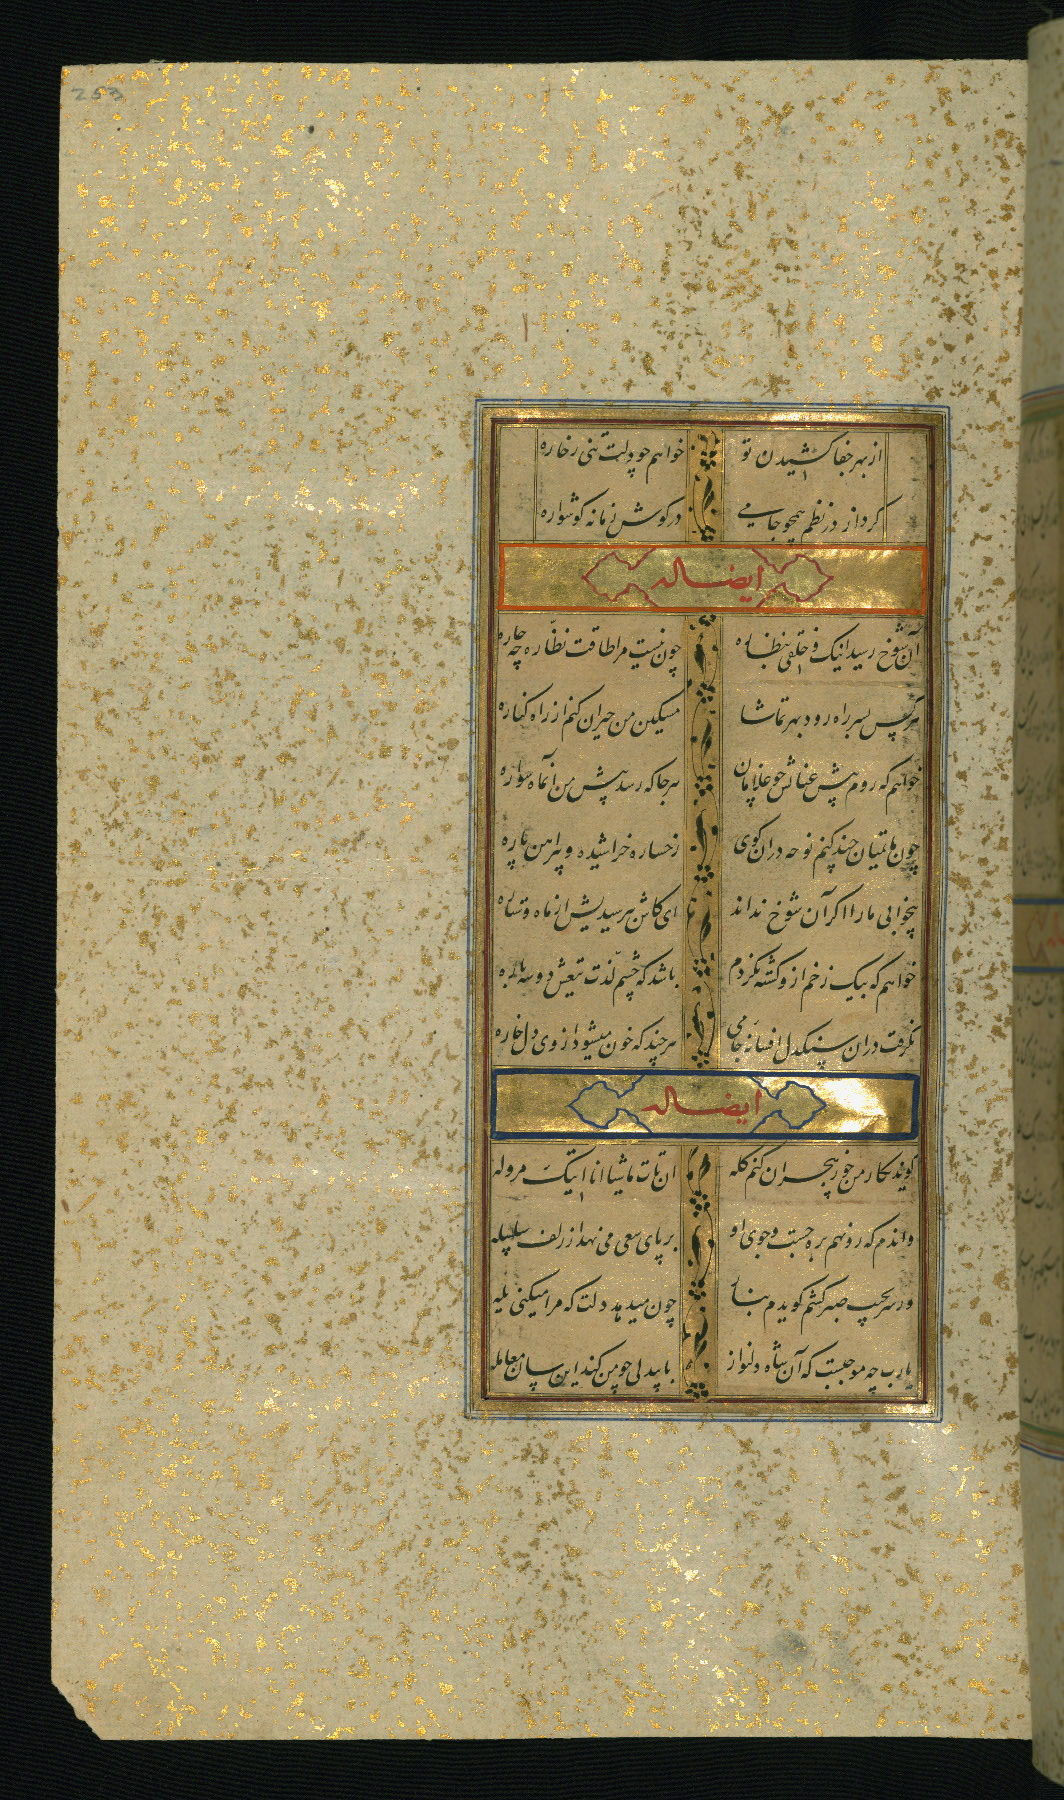 253
از بهر جفا کشیدن تو خواهم چو دلت تنی ز خاره
کرد از در نظم همچو جامی در کوش زمانه کوشواره
ایضا له
آن شوخ رسید اینک و خلقی بنظاره چون نیست مرا طاقت نظاره چه چاره
هر کس بسر راه رود بهر تماشا مسکین من حیران کنم از راه کناره
خواهم که روم پیش عنانش چو غلامان هر جا که رسد پیش من آن ماه سواره
چون ماتمیان چند کنم نوحه در ان کوی رخساره خراشیده و پیراهن پاره
بیخوابی ما را اکر آن شوخ نداند ای کاش بپرسید از ماه و ستاره
خواهم که بیک زخم ازو کشته نکردم باشد که چشم لذت تیغش دو سه باره
نکرفت در ان سنکدل افسانه جامی هر چند که خون میشود از وی دل خاره
ایضا له
کویند کار من چو ز هجران کنم کله ان تات ماشیا انا اتیک هروله
واندم که رو نهم بره جست و جوی او بر پای سعی می نهد از زلف سلسله
ور سر بجیب صبر کشم کویدم بناز چون میدهد دلت که مرا میکنی یله
یارب چه موجبست که آن شاه دلنواز با بیدلی چو من کند این سان معامله